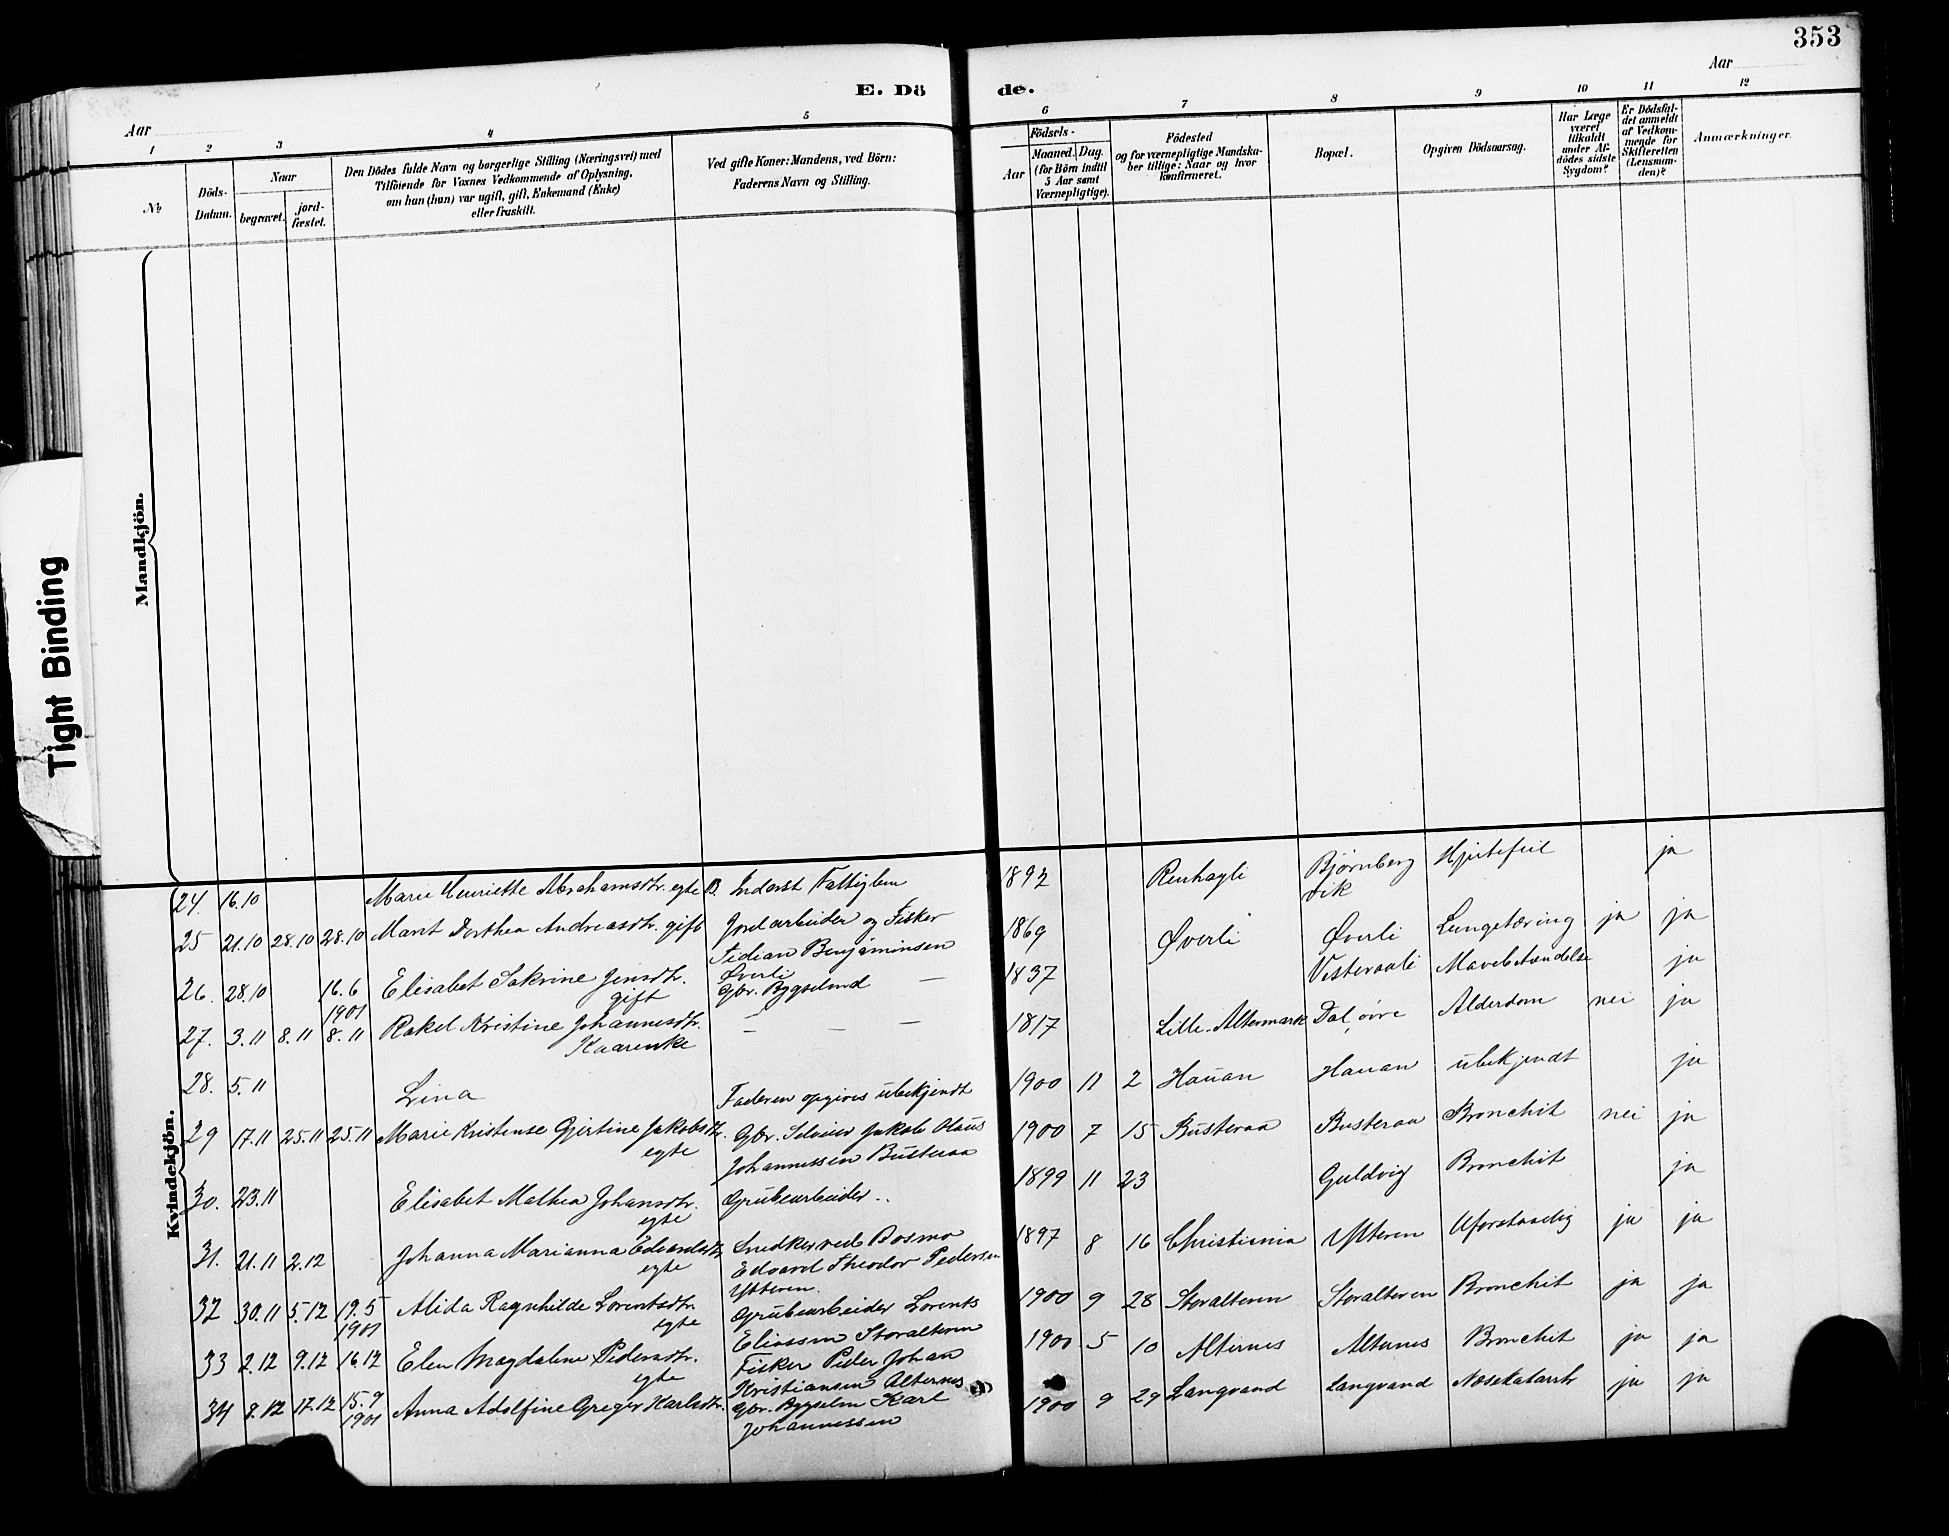 353
E. Dö de.
Aar
Aar
1 2 3 4 5 6 7 8 9 10 11 12
No
Döds-Datum.
Naar
begravet.
jord-fæstet.
Den Dödes fulde Navn og borgerlige Stilling (Næringsvei) med
Tilföiende for Voxnes Vedkommende af Oplysning,
om han (hun) var ugift, gift, Enkemand (Enke)
eller fraskilt.
Ved gifte Koner: Mandens, ved Börn:
Faderens Navn og Stilling.
Födsels-
Aar
Maaned. Dag.
(for Börn indtil
5 Aar samt
Værnepligtige).
Födested
og for værnepligtige Mandska-
ber tillige: Naar og hvor
konfirmeret.
Bopæl.
Opgiven Dödsaarsag.
Har Læge
været
tilkaldt
under Af-
dödes sidste
Sygdom?
Er Dödsfal-
det anmeldt
af Vedkom-
mende for
Skifteretten
(Lensman-
den)?
Anmærkninger.
Mandkjön.
Tight Binding
Kvindekjön.
24. 16.10 Marie Henriette Abrahamsdtr. egte B. Inderst Fattiglem 1892 Renhagli Bjørnberg
vik Hjertefeil ja
25 21.10 28.10 28.10 Marit Dorthea Andreasdtr. gift Jordarbeider og Fisker
Tidian Benjaminsen
Øverli 1869 Øverli Øverli Lungetæring ja ja
26. 28.10 16.6
1901 Elisabet Sakrine Jensdtr.
gift Gbr. Bygselmd — 1837 Vesteraali Mavebetændelse ja
27. 3.11 8.11 8.11 Rakel Kristine Johannesdtr.
Kaarenke — — — 1817 Lille-Altermark Dal, øvre Alderdom nei ja
28. 5.11 Lina Faderen opgives ubekjendt 1900 11 2 Hauan Hauan ubekjendt ja
29 17.11 25.11 25.11 Marie Kristense Gjertine Jakobsdtr.
egte Gbr. Selveier Jakob Olaus
Johannessen Busteraa 1900 7 15 Busteraa Busteraa Bronchit nei ja
30. 23.11 Elisabet Mathea Johansdtr.
egte Grubearbeider.. 1899 11 23 Guldvig Bronchit ja
31. 21.11 2.12 Johanna Marianna Edvardsdtr.
egte Snedker ved Bosmo
Edvard Theodor Pedersen
Ytteren. 1897 8 16 Christiania Ytteren Uforstaaelig ja ja
32 30.11 5.12 19.5
1901 Alida Ragnhilde Lorentsdtr.
egte Grubearbeider Lorents
Eliassen Storalteren 1900 9 28 Storalteren Storalteren Bronchit ja ja
33 2.12 9.12 16.12 Elen Magdalene Pedersdtr.
egte Fisker Peder Johan
Kristiansen Alternes 1900 5 10 Alternes Alternes Bronchit ja ja
34 8.12 17.12 15.9
1901 Anna Adolfine Greger Karlsdtr. Gbr. Bygselm Karl
Johannessen 1900 9 29 Langvand Langvand Næsekatarrh ja ja